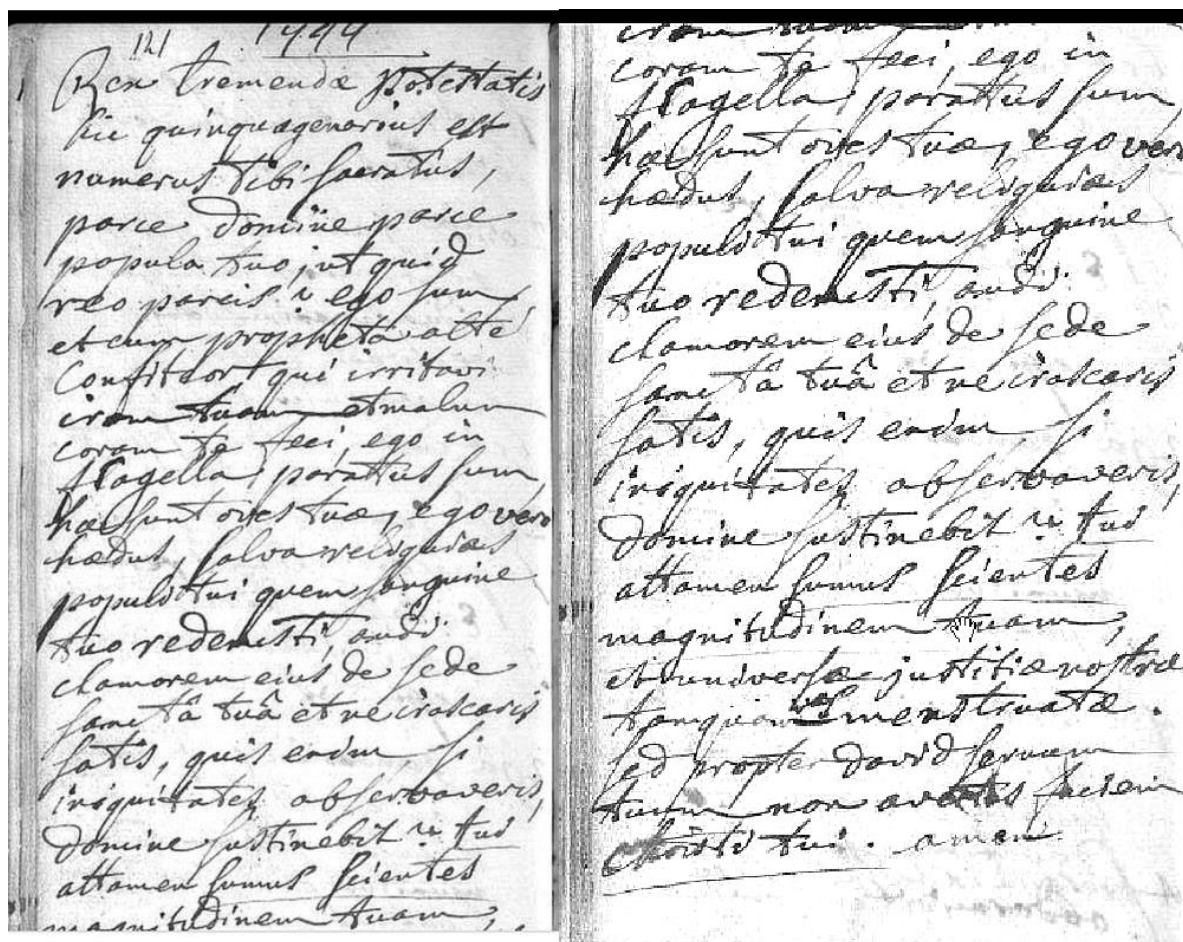 121
Rex tremendæ potestatis
hic quinquagenarius est
numerus tibi sacratus,
parce domine parce
populo tuo, ut quid
reo parcis? ego sum,
et cum prophetâ alte
confiteor, qui irritavi
iram tuam et malum
coram te feci, ego in
flagella paratus sum,
hæ sunt oves tuæ, ego vero
hædus, salva reliquias
populi tui quem sanguine
tuo redemisti, audi
clamorem eius de sede
sanctâ tuâ et ne irascaris
satis, quis enim si
iniquitates observaveris,
domine sustinebit? tui
attamen sumus scientes
magnitudinem tuam,
coram te feci, ego in
flagella paratus sum,
hæ sunt oves tuæ, ego vero
hædus, salva reliquias
populi tui quem sanguine
tuo redemisti, audi
clamorem eius de sede
sanctâ tuâ et ne irascaris
satis, quis enim si
iniquitates observaveris,
domine sustinebit? tui
attamen sumus scientes
magnitudinem tuam,
et universæ justitiæ nostræ
tanquam menstruatæ.
sed propter david servum
tuum non avertas faciem
christi tui. amen